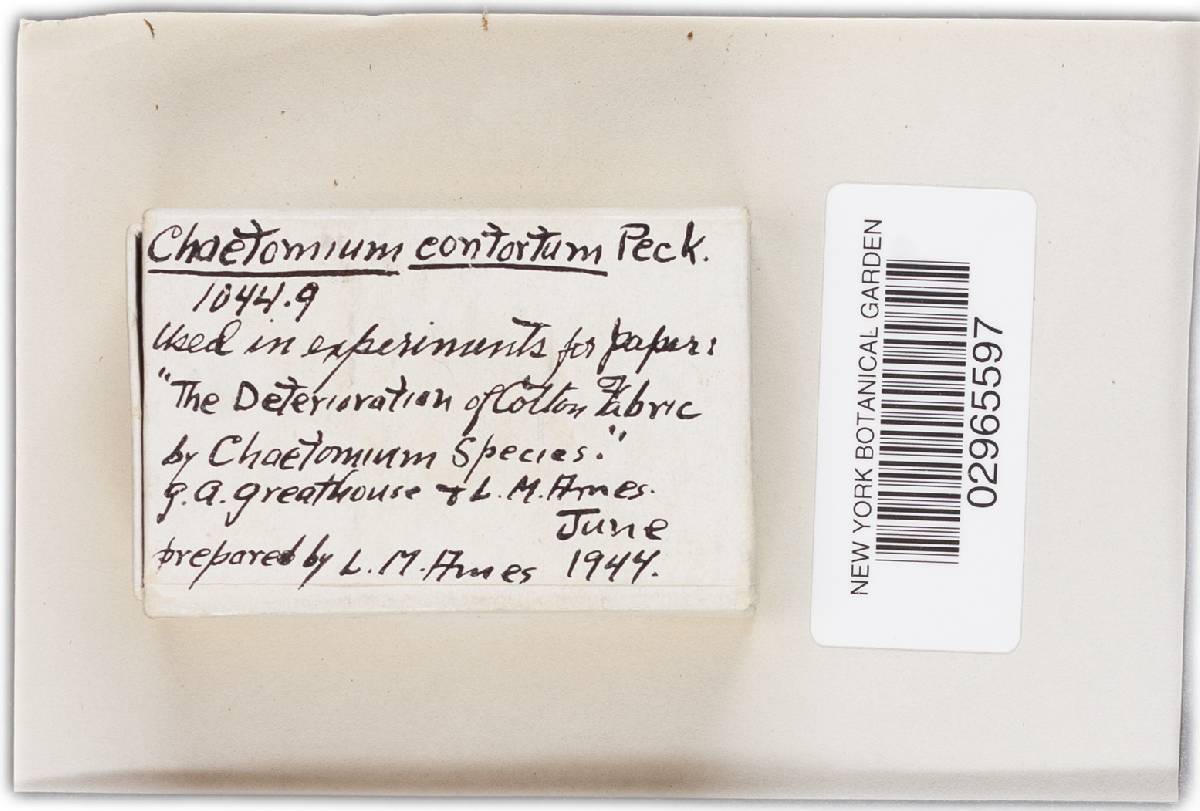 Chaetomium contortum Peck.
1044.9
Used in experiments for paper:
"The Deterioration of Cotton Fabric
by Chaetomium Species."
G. A. Greathouse & L. M. Ames.
June
prepared by L. M. Ames 1944.
NEW YORK BOTANICAL GARDEN
02965597